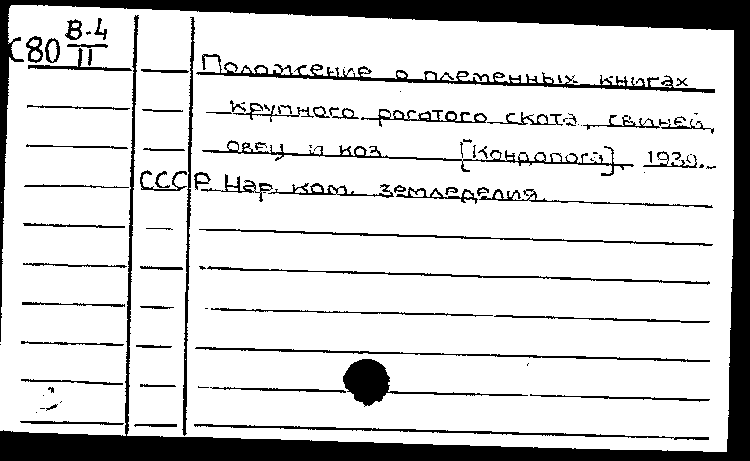 С80 В-4
II
Положение о племенных книгах
крупного рогатого скота, свиней,
овец и коз. [Кондопога], 1930.
СССР. Нар. ком. земледелия.